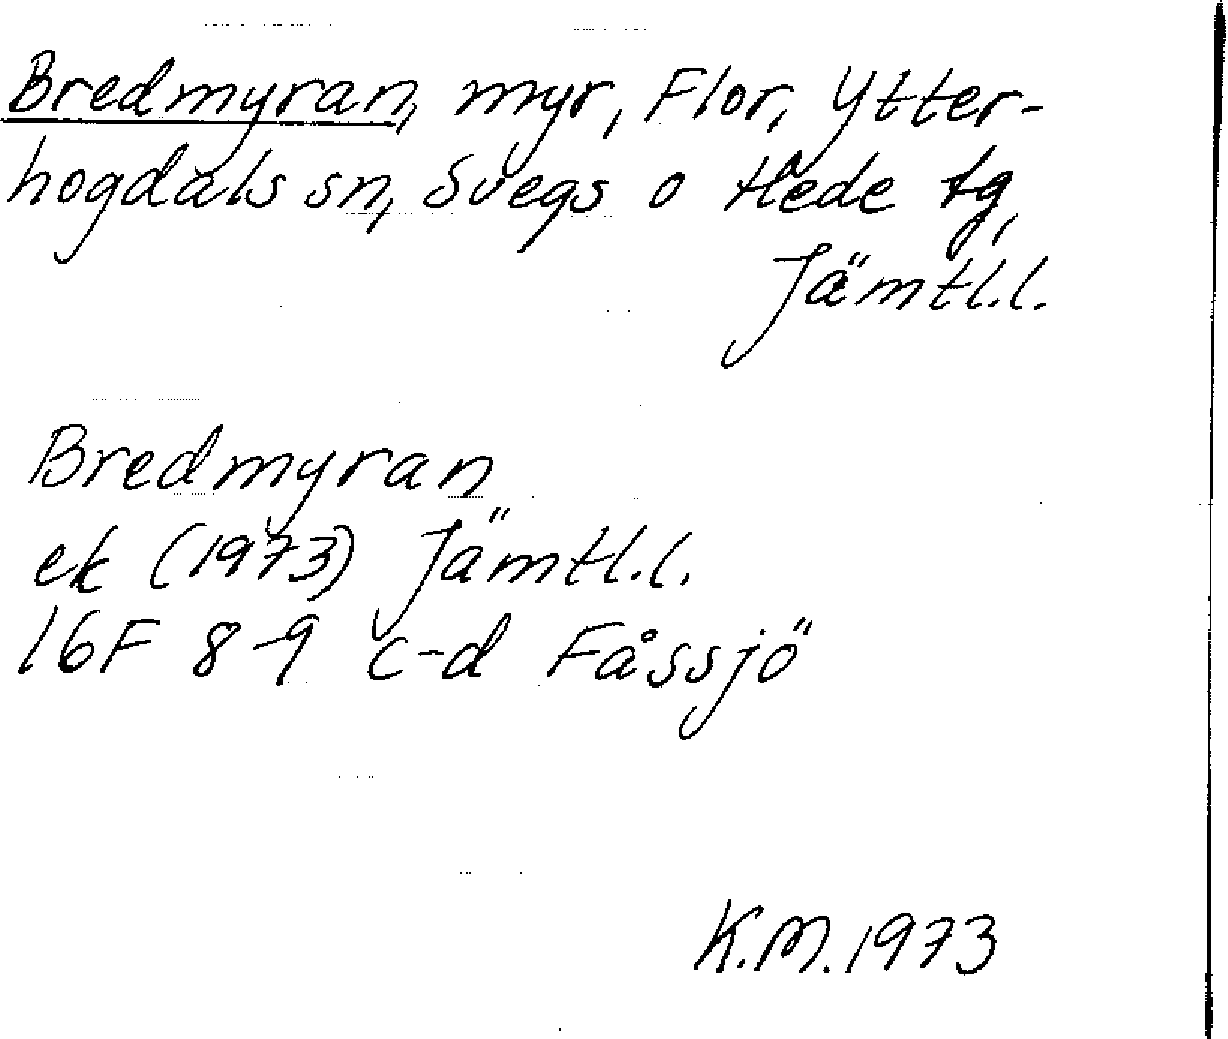 Bredmyran, myr, Flor, Ytter-
hogdals sn, Svegs o Hede tg,
Jämtl.l.
Bredmyran
ek (1973) Jämtl.l.
16F 8-9 c-d Fåssjö
K.M. 1973